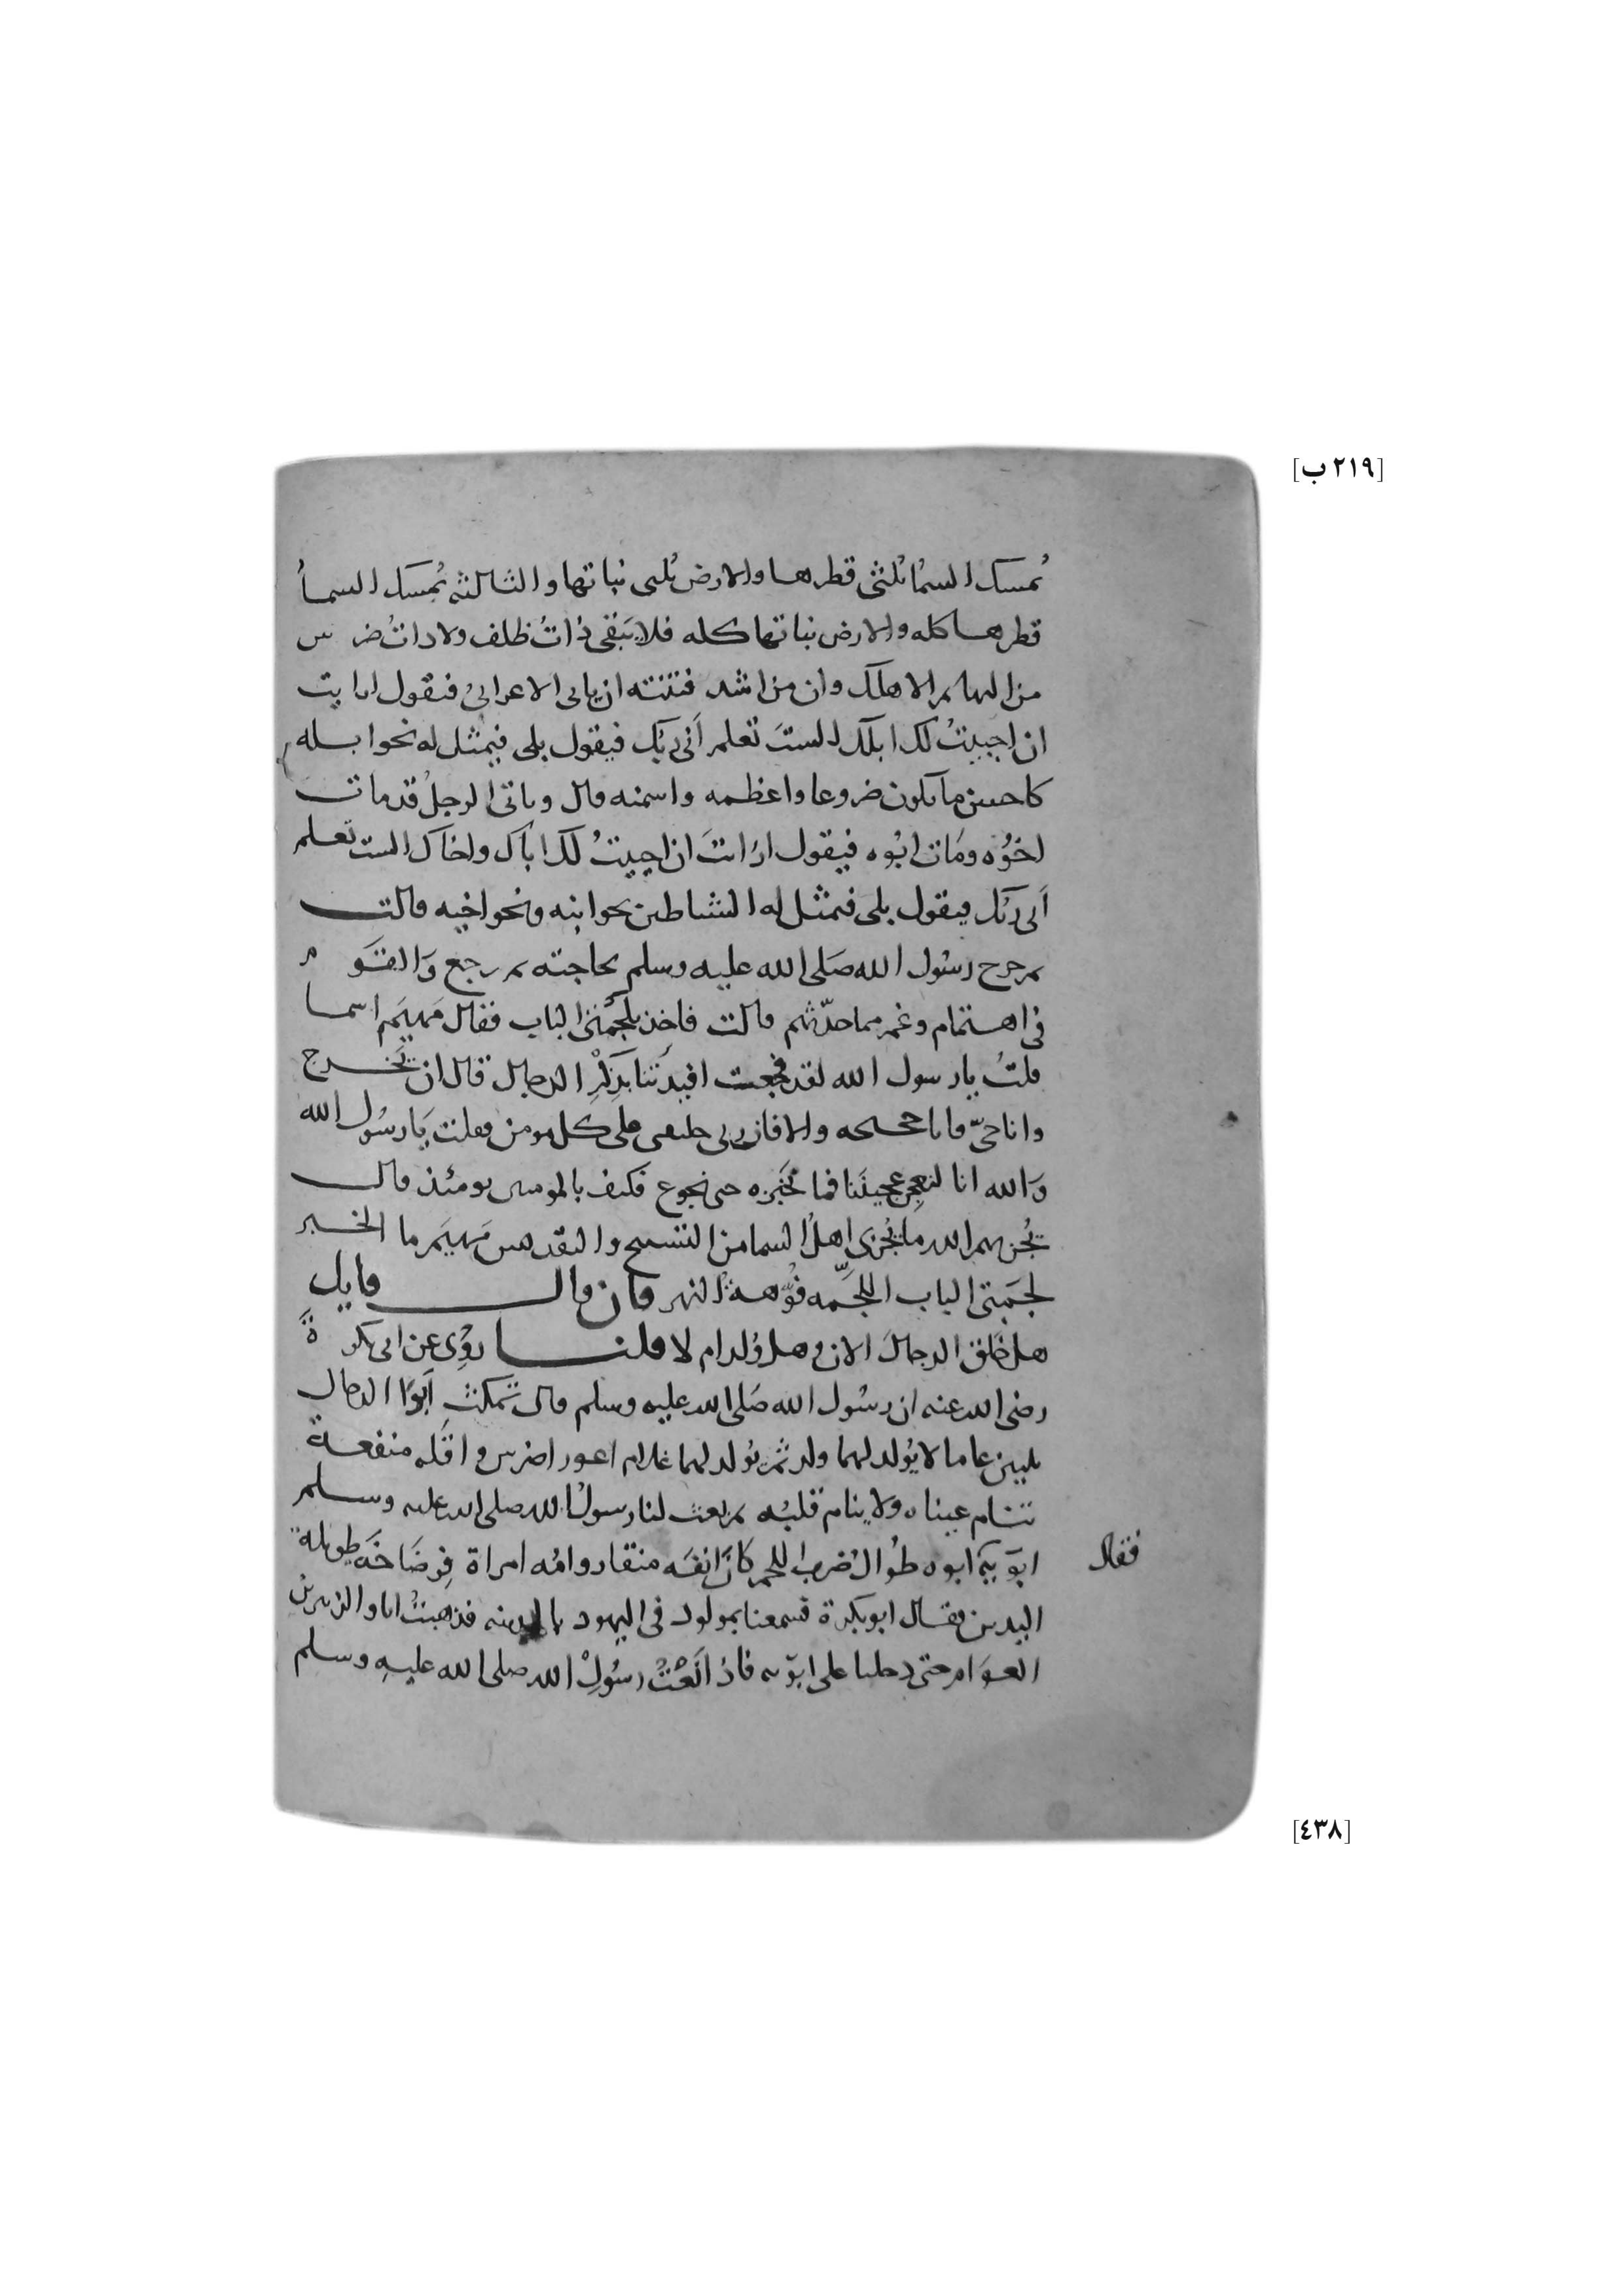 [٢١٩ ب]
تُمسك السمُا ثلثى قطرها والارض ثلثى نباتها والثالثه تُمسَك السمأ
قطرها كله والارض نباتها كله فلا يَبقى ذاتُ ظلف ولا ذاتُ ضرس
من البهايم الا هلك وان من اشد فتنته ان ياتى الاعرابىُ فيقول ارايت
ان احييتُ لك ابلك الستَ تعلم اَنى ربك فيقول بلى فيمثل له نحو ابله
كاحسن ما يكون ضروعا واعظمه واسمنه قال وياتى الرجلُ قد مات
اخوُه ومَات ابُوه فيقول ارايتَ ان احييتُ لك اباك واخاك الست تعلم
اَنى ربك فيقول بلى فيمثل له الشياطين نحو ابيه ونحو اخيه قالت
ثم خرج رسُول الله صَلى الله عليه وسلم لحاجته ثم رجع وَالقَوم
فى اهتمام وغم مما حدّثهم قالت فاخِذ بلجُمَتى الباب فقال مَهيَم اسما
قلتُ يا رسول الله لقد فجعت افيدتنا بذِكْرِ الدجال قال ان يَخرج
وانا حىّ فانا حجيجه والا فان ربى خليفتى على كل مومن فقلت يَا رسُول الله
وَالله انا لنعجِن عجينَنا فما نَخبَزه حتى نجوع فكيف بالمومنين يومئذ قال
يُجزيهم الله ما يُجزى اهلُ السما من التسبيح والتقديس مَهيَم ما الخبر
لجَمتى الباب اللجَمّه فوُّهةُ النهر فان قال قايل
هل خُلق الدجالَ الان وهل وُلد ام لا قلنا رُوِى عن ابى بكرةَ
رضى الله عنه ان رسُول الله صَلى الله عليه وسلم قال تمكثِ اَبوَا الدجال
ثلثين عاما لا يُولد لهما ولد ثم يُولد لهما غلام اعور اضرس واقَله منفعة
تنام عيناه ولا ينام قلبُه ثم نعت لنا رسولُ الله صلى الله عليه وسلم
فقال
ابوَيه ابوه طُوالُ ضربُ اللحم كاَنَّ انفَه منقار وامُه امراة فِرضَاخَه طويلة
اليدين فقال ابو بكرة فسمعنا بمولود فى اليهود بالمدينه فذهبتُ انا والزبير بن
العوَام حتى دخلنا على ابوَيه فاذا نَعْتُ رسُولِ الله صلى الله عليهِ وسلم
[٤٣٨]